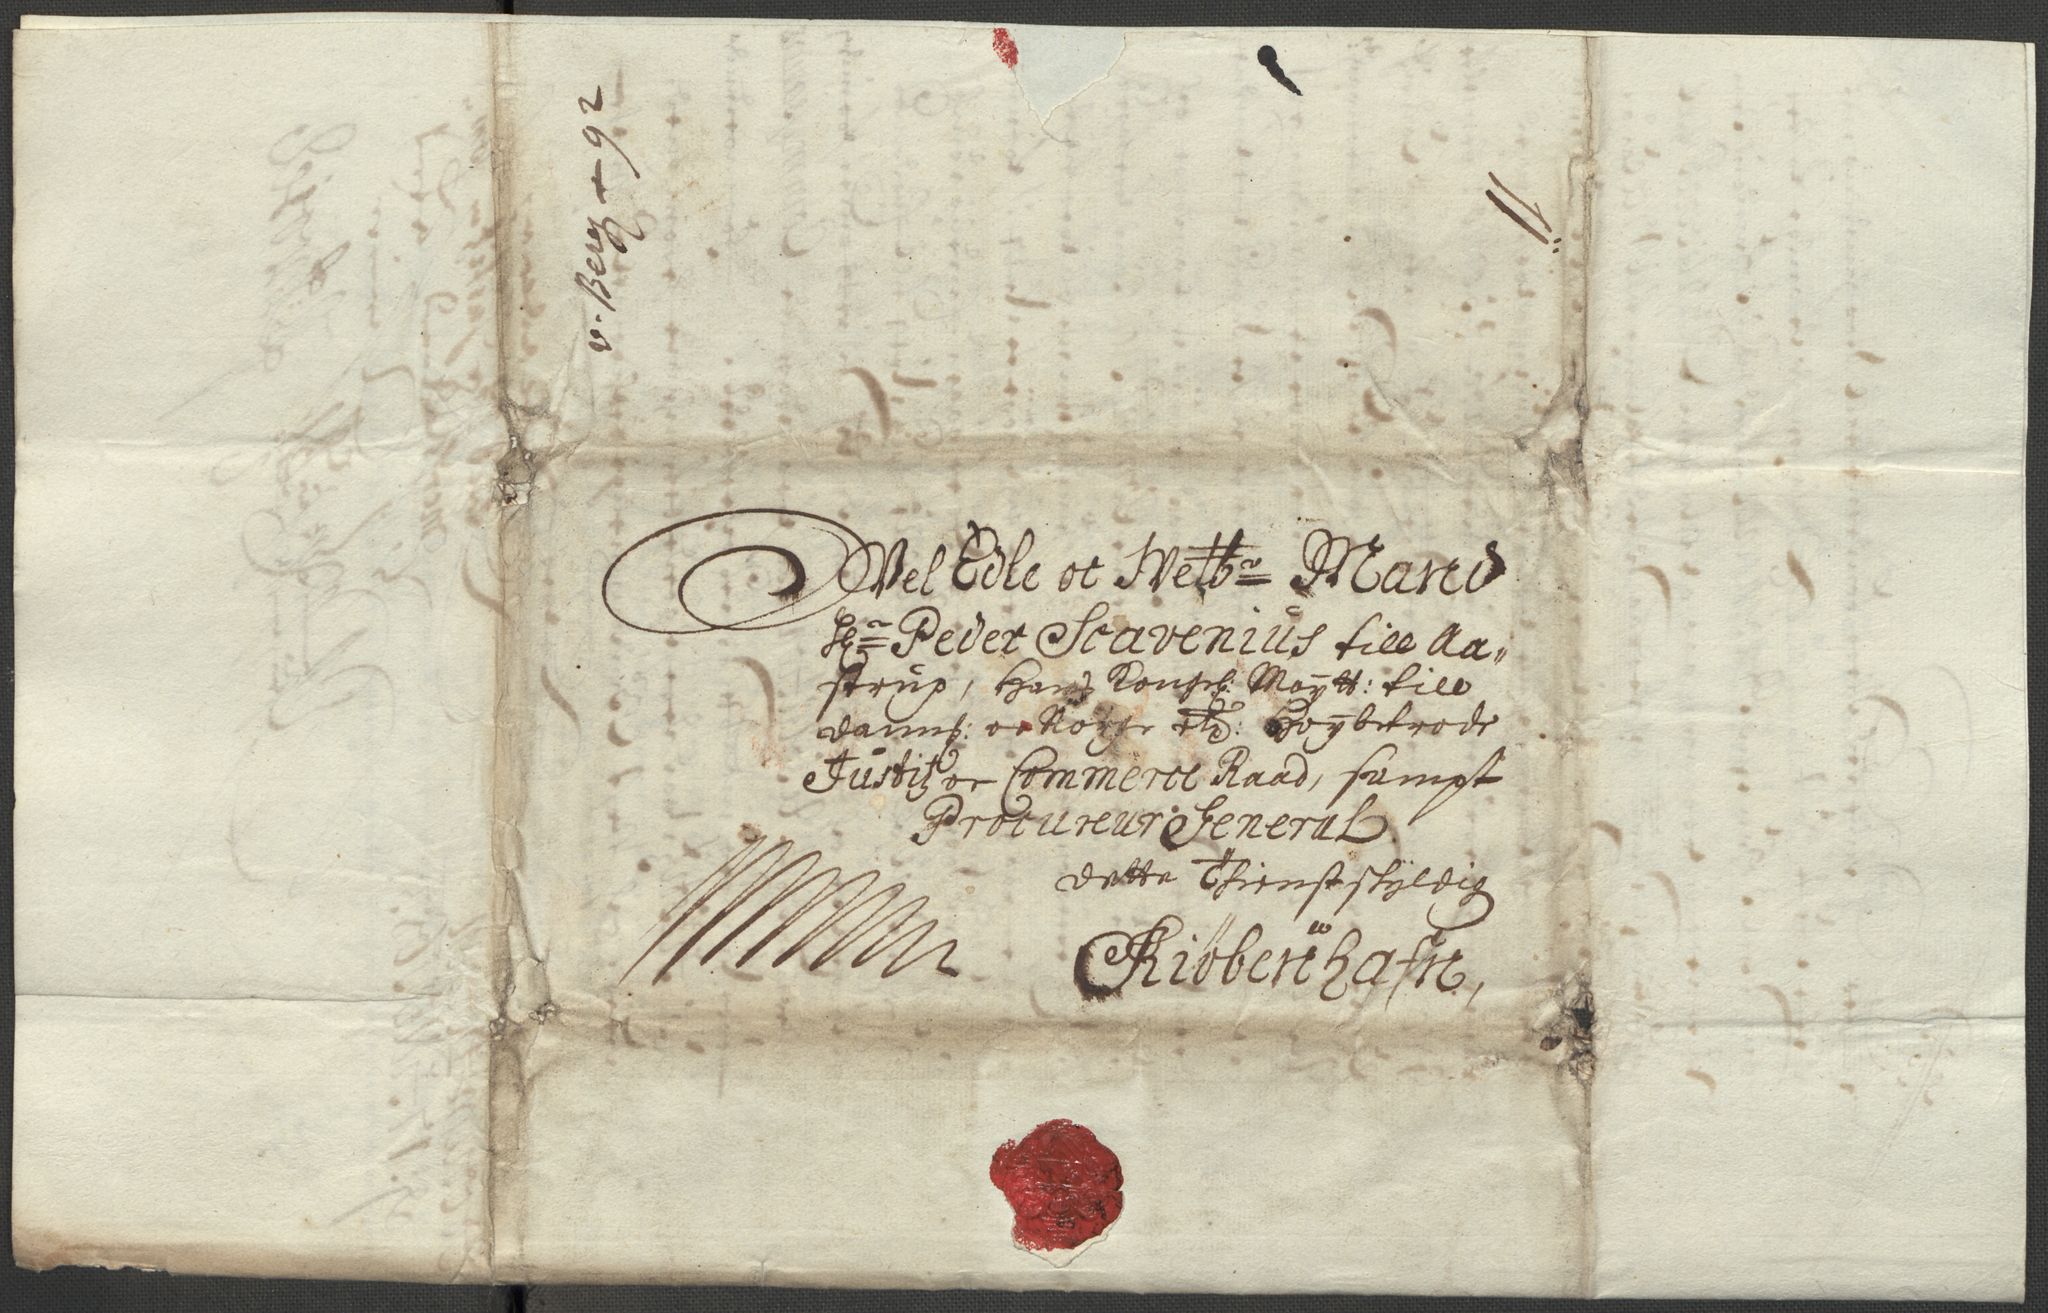 v. Berg + 92
11
Vel Edle oc Welb: Mand
Hr Peder Scavenius till Aa=
strup, Hans Kongel: Maytt: till
danm: oc Norge etc: Høybetrode
Justitz oc Commerce Raad, sampt
Procureur General
dette Thienstskyldig
Kiöbenhafn,